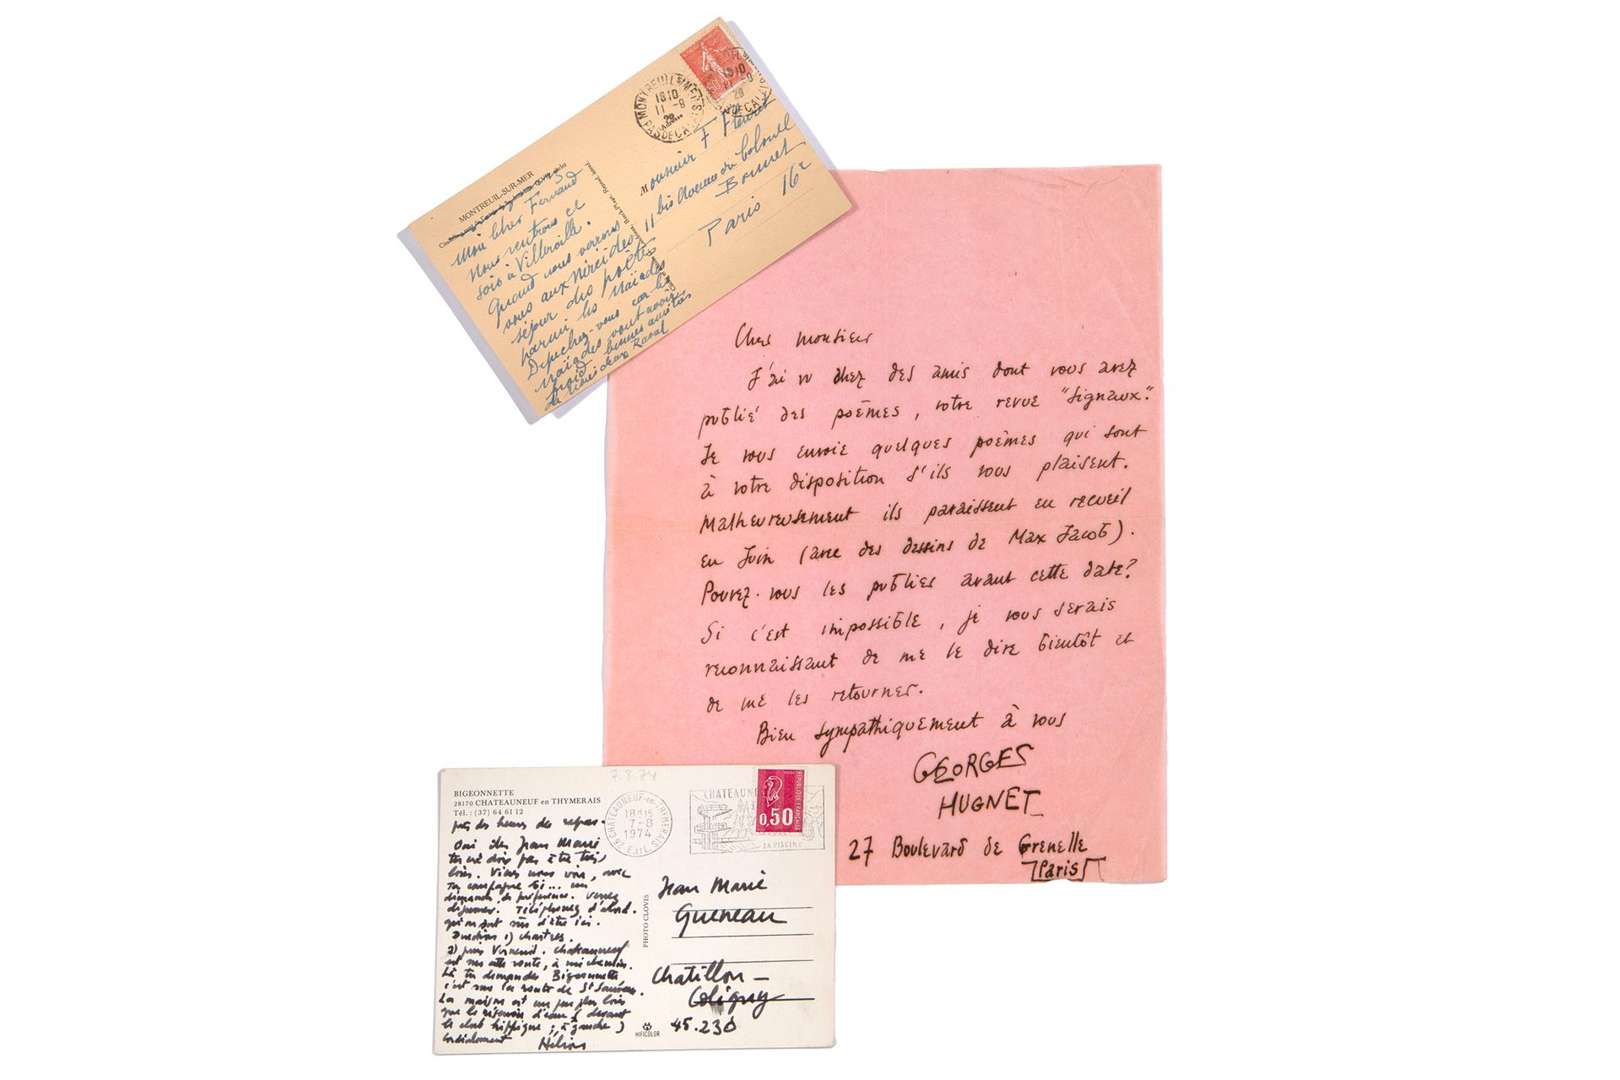 MONTREUIL-SUR-MER
Mon cher Fernand
Nous rentrons ce
soir à
Quand vous verrons
nous aux
séjour des poètes
parmi les Naïades
Dépêchez-vous car les
naïades vont avoir
froid bonnes amitiés
MONTREUIL S MER
1810
11 -8
PAS DE CALAIS
Monsieur F Fleuret
11 bis Avenue du Colonel
Bonnet
Paris 16e
Cher monsieur
J'ai vu chez des amis dont vous avez
publié des poèmes, votre revue "Signaux".
Je vous envoie quelques poèmes qui sont
à votre disposition s'ils vous plaisent.
Malheureusement ils paraissent en recueil
en Juin (avec des dessins de Max Jacob).
Pouvez-vous les publier avant cette date?
Si c'est impossible, je vous serais
reconnaissant de me le dire bientôt et
de me les retourner.
Bien sympathiquement à vous
GEORGES
HUGNET
27 Boulevard de Grenelle
Paris
7.8.74
BIGEONNETTE
28170 CHATEAUNEUF en THYMERAIS
Tél. : (37) 64 61 12
près des heures de repas.
Oui cher Jean Marie
tu ne dois pas être très
loin. Viens nous voir, avec
ta compagne si... un
dimanche de préférence. Venez
déjeuner. Téléphonez d'abord.
qu'on soit sûr d'être ici.
Direction 1) chartres.
2) puis Verneuil. Chateauneuf
est sur cette route, à mi chemin.
Là tu demandes Bigeonnette
c'est sur la route de St Sauveur.
La maison est un peu plus loin
que le réservoir d'eau (devant
le club hippique ; à gauche)
cordialement Hélion
CHATEAUNEUF-en-THYMERAIS
18H15
7-8
1974
28 E.et L.
CHATEAUNEUF
SA PISCINE
REPUBLIQUE FRANCAISE
0,50
PHOTO CLOVIS
Jean Marie
Queneau
Chatillon-
Coligny
45.230
MIFICOLOR